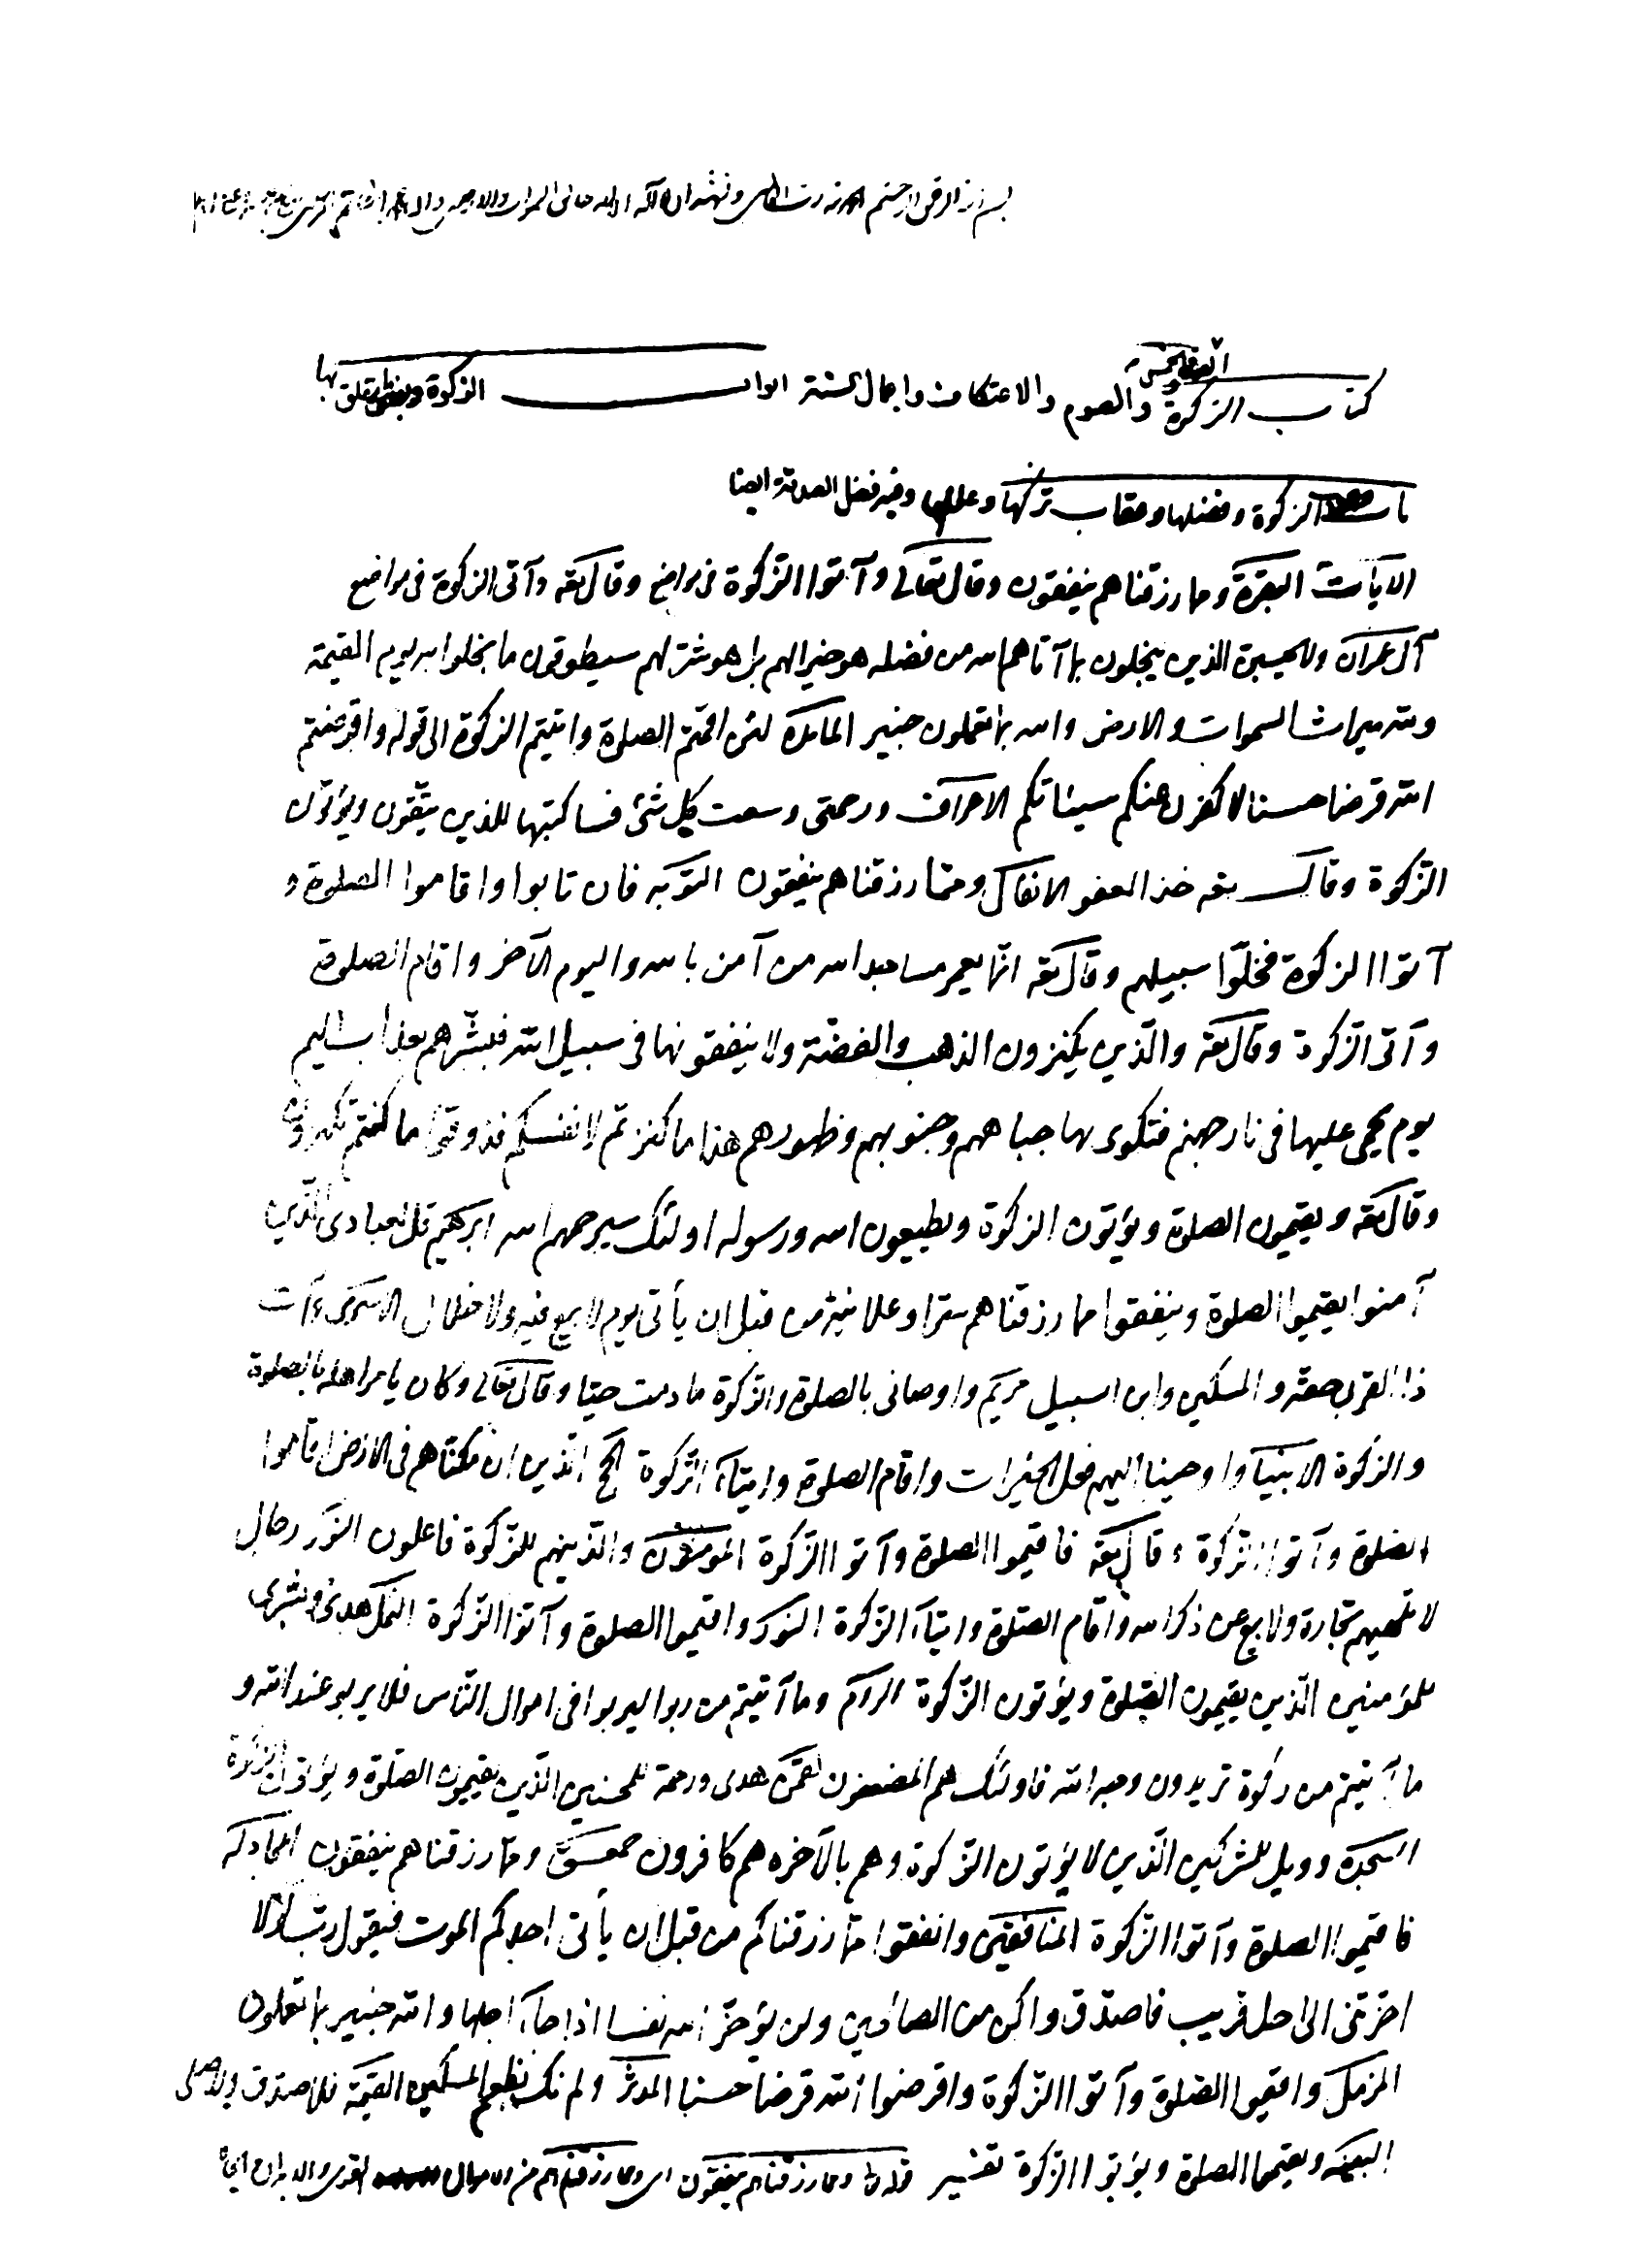 بسم الله الرحمن الرحيم
كتاب الزكوة والصوم والاعتكاف واعمال السنة ابواب الزكوة وما يتعلق بها
والخمس
باب وجوب الزكوة وفضلها وعقاب تركها وعللها وفيه فضل الصدقة ايضا
الآيات البقرة ومما رزقناهم ينفقون وقال تعالى وآتوا الزكوة في مواضع وقال تعه وآتى الزكوة في مواضع
آل عمران ولا يحسبن الذين يبخلون بما آتاهم الله من فضله هو خيرا لهم بل هو شر لهم سيطوقون ما بخلوا به يوم القيمة
ولله ميراث السموات والارض والله بما تعملون خبير المائدة لئن اقمتم الصلوة وآتيتم الزكوة الى قوله واقرضتم
الله قرضا حسنا لاكفرن عنكم سيئاتكم الاعراف ورحمتي وسعت كل شئ فساكتبها للذين يتقون ويؤتون
الزكوة وقال تعه خذ العفو الانفال ومما رزقناهم ينفقون التوبه فان تابوا واقاموا الصلوة و
آتوا الزكوة فخلوا سبيلهم وقال تعه انما يعمر مساجد الله من آمن بالله واليوم الآخر واقام الصلوة
وآتى الزكوة وقال تعه والذين يكنزون الذهب والفضة ولا ينفقونها في سبيل الله فبشرهم بعذاب اليم
يوم يحمى عليها في نار جهنم فتكوى بها جباههم وجنوبهم وظهورهم هذا ما كنزتم لانفسكم فذوقوا ما كنتم تكنزون
وقال تعه ويقيمون الصلوة ويؤتون الزكوة ويطيعون الله ورسوله اولئك سيرحمهم الله ابرهيم قل لعبادي الذين
آمنوا يقيموا الصلوة وينفقوا مما رزقناهم سرا وعلانية من قبل ان يأتي يوم لا بيع فيه ولا خلال الاسرى وآت
ذا القربى حقه والمسكين وابن السبيل مريم واوصاني بالصلوة والزكوة ما دمت حيا وقال تعالى وكان يامر اهله بالصلوة
والزكوة الانبياء واوحينا اليهم فعل الخيرات واقام الصلوة وايتاء الزكوة الحج الذين ان مكناهم في الارض اقاموا
الصلوة وآتوا الزكوة وقال تعه فاقيموا الصلوة وآتوا الزكوة المؤمنون والذينهم للزكوة فاعلون النور رجال
لا تلهيهم تجارة ولا بيع عن ذكر الله واقام الصلوة وايتاء الزكوة النور واقيموا الصلوة وآتوا الزكوة النمل هدى وبشرى
للمؤمنين الذين يقيمون الصلوة ويؤتون الزكوة الروم وما آتيتم من ربوا ليربوا في اموال الناس فلا يربو عند الله و
ما آتيتم من زكوة تريدون وجه الله فاولئك هم المضعفون لقمن هدى ورحمة للمحسنين الذين يقيمون الصلوة ويؤتون الزكوة
السجدة وويل للمشركين الذين لا يؤتون الزكوة وهم بالآخره هم كافرون حمعسق ومما رزقناهم ينفقون المجادله
فاقيموا الصلوة وآتوا الزكوة المنافقين وانفقوا مما رزقناكم من قبل ان يأتى احدكم الموت فيقول رب لولا
اخرتني الى اجل قريب فاصدق واكن من الصالحين ولن يؤخر الله نفسا اذا جاء اجلها والله خبير بما تعملون
المزمل واقيموا الصلوة وآتوا الزكوة واقرضوا الله قرضا حسنا المدثر ولم نك نطعم المسكين القيمة فلا صدق ولا صلى
البينه ويقيموا الصلوة ويؤتوا الزكوة تفسير قوله تعالى ومما رزقناهم ينفقون اى ومما رزقناهم من الاموال القوى والابدان